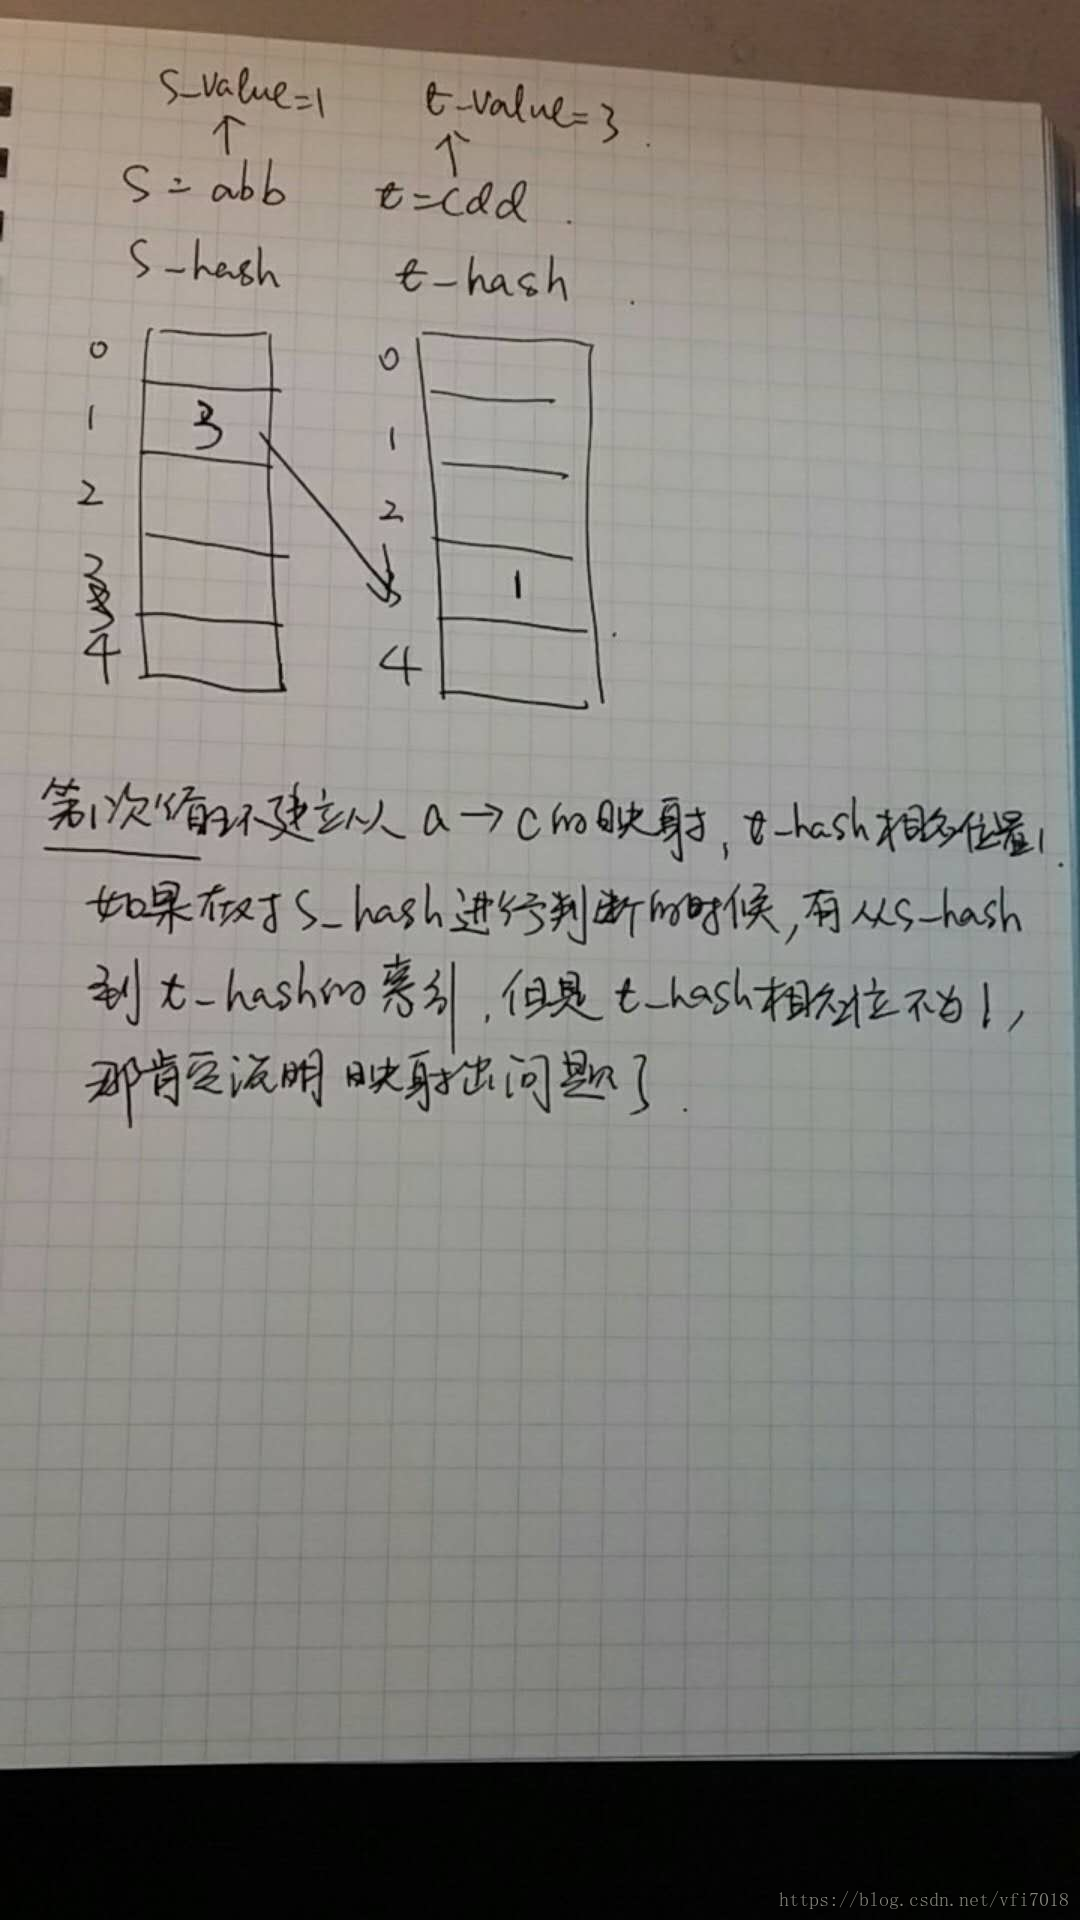 s_value=1 t_value=3
↑ ↑
S = abb t=cdd
S_hash t_hash
0 0
1 3 1
2 2
3 3 1
4 4
第1次循环建立从 a → c的映射, t_hash相多位置1.
如果在对S_hash进行判断的时候,有从S_hash
到t_hash的索引,但是t_hash相对位不为1,
那肯定说明映射出问题了.
https://blog.csdn.net/vfi7018